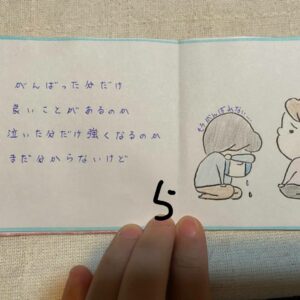 がんばった分だけ
良いことがあるのか
泣いた分だけ強くなるのか
まだ分からないけど
もうがんばれない…
5